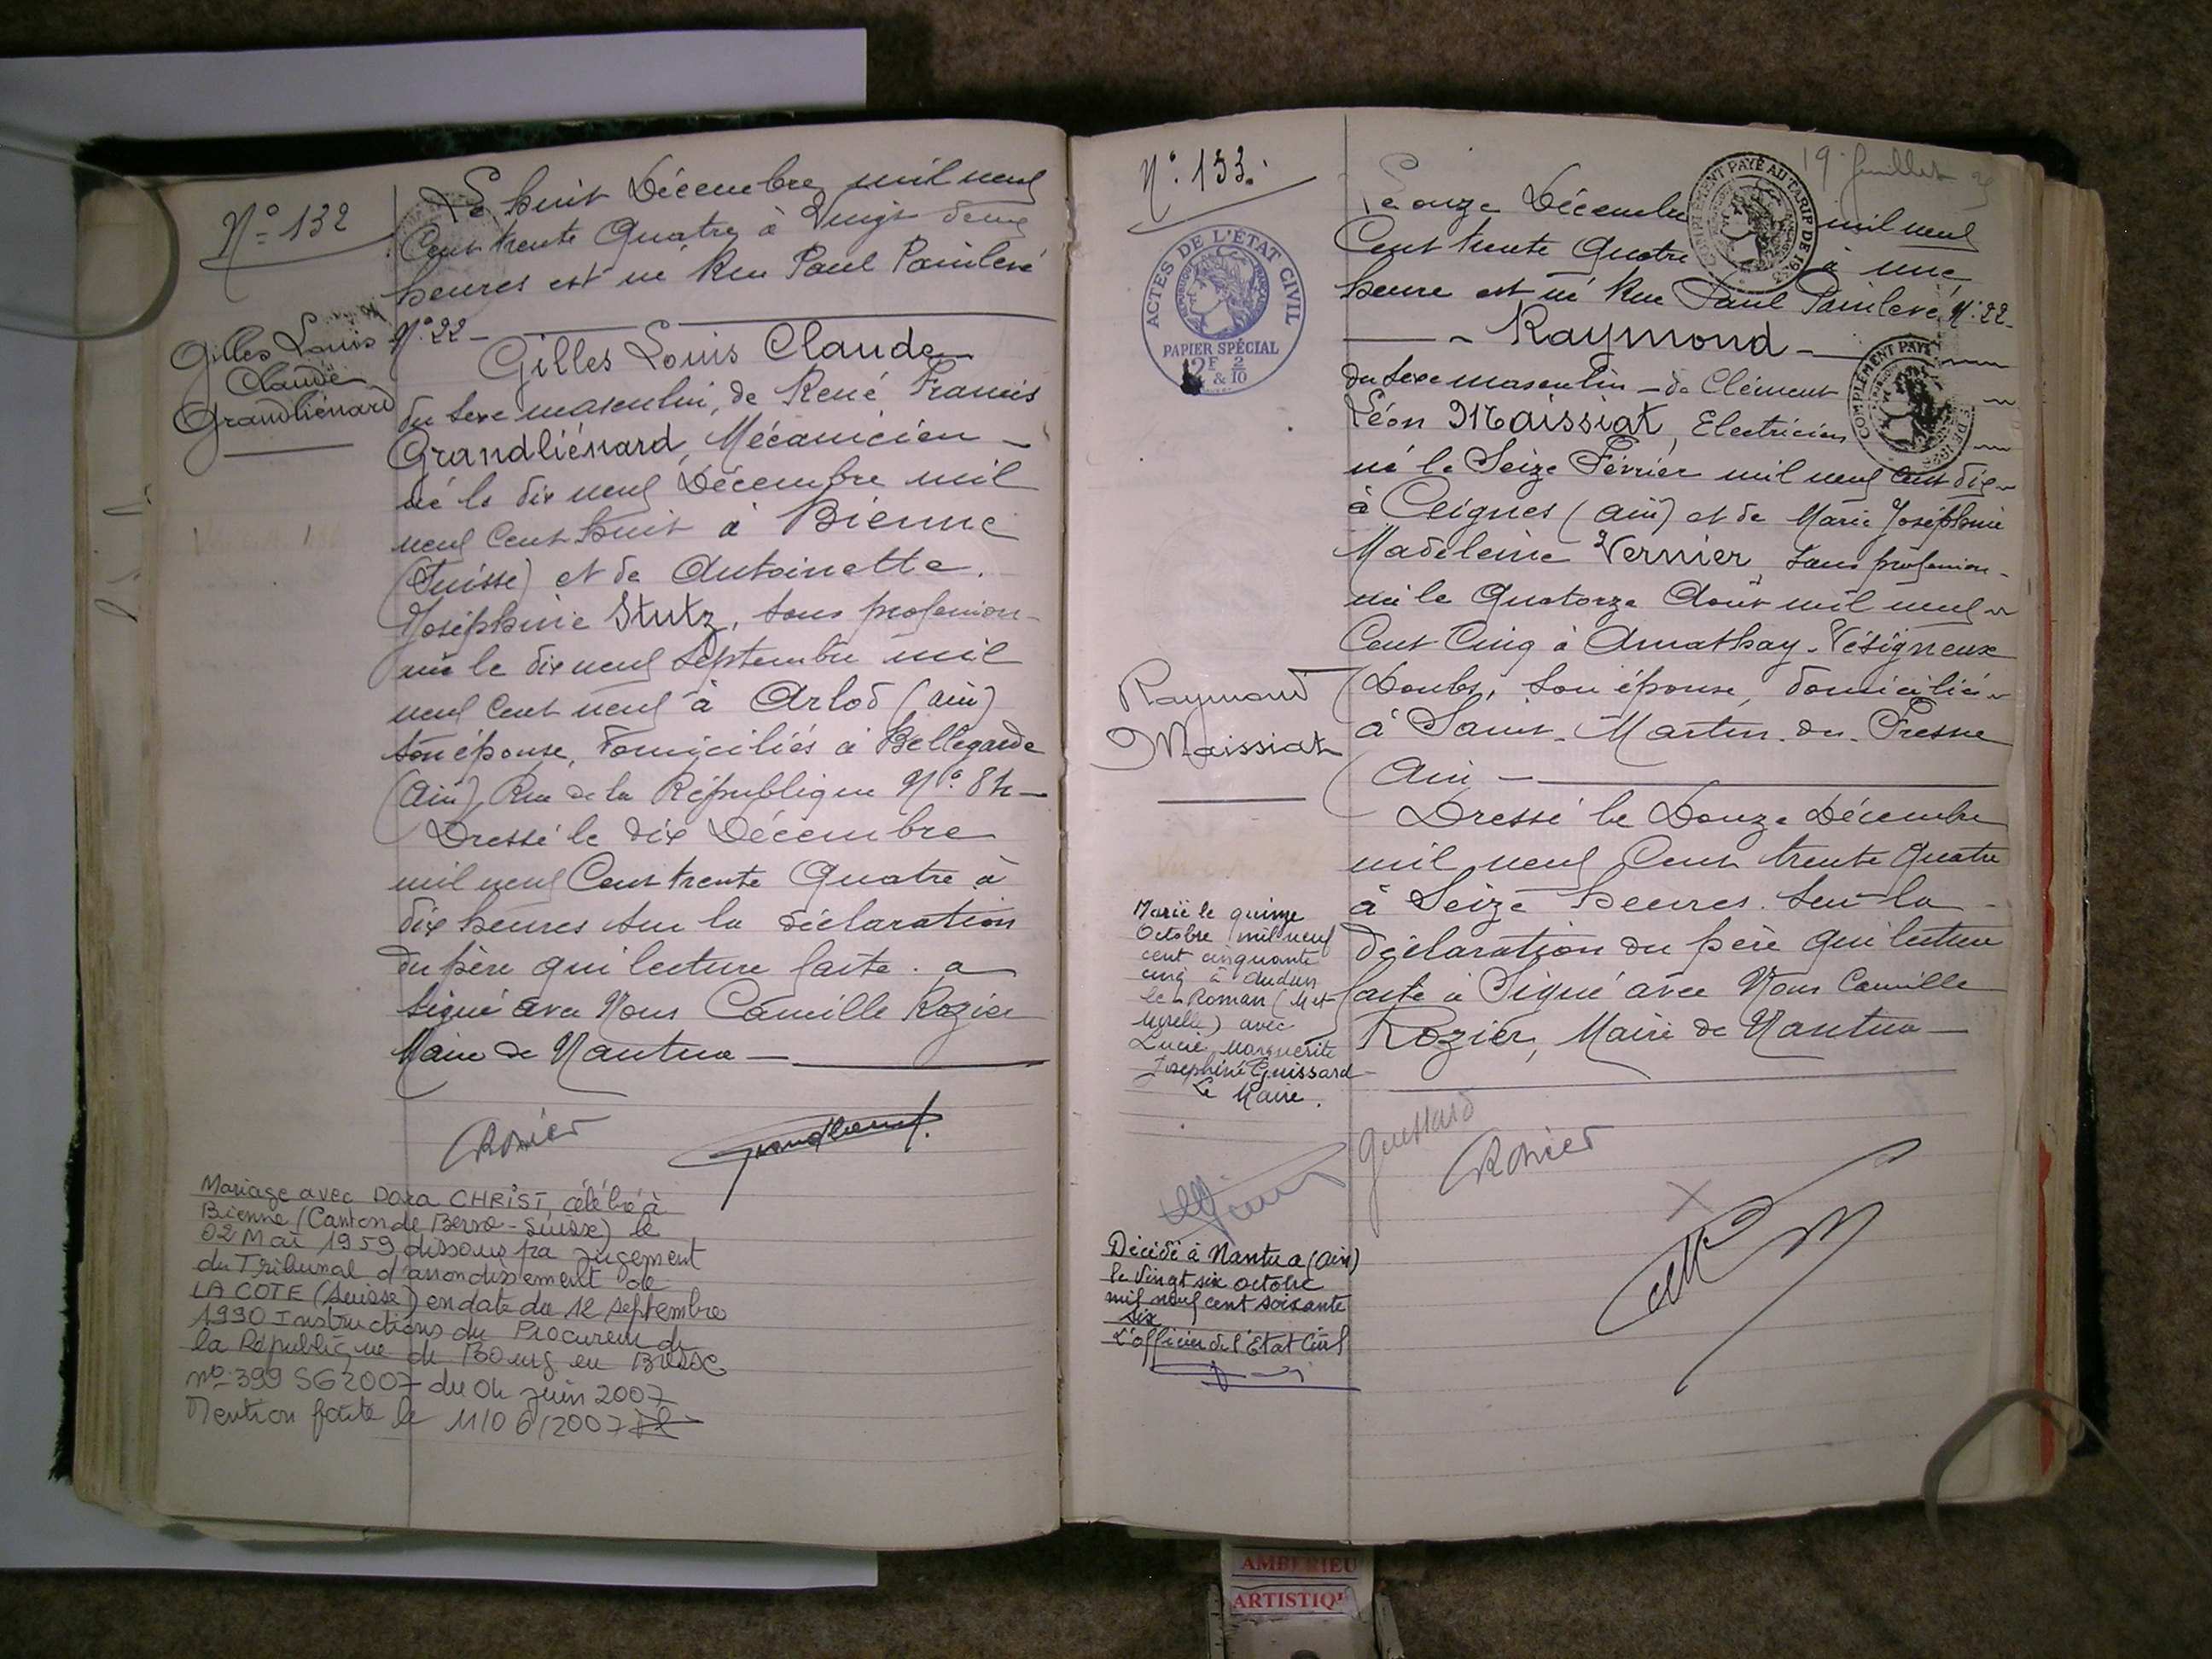 N° 132
Gilles Louis
Claude
Grandliénard
Le huit Décembre mil neuf
Cent trente Quatre à Vingt deux
heures est né Rue Paul Painlevé
N° 22 —
Gilles Louis Claude
du sexe masculin, de René Francis
Grandliénard, Mécanicien —
né le dix neuf Décembre mil
neuf Cent huit à Bienne
(Suisse) et de Antoinette
Joséphine Stutz, sans profession
née le dix neuf Septembre mil
neuf Cent neuf à Arlod (Ain)
son épouse, domiciliés à Bellegarde
(Ain), Rue de la République N°
Dressé le dix Décembre
mil neuf Cent trente Quatre à
dix heures sur la déclaration
du père qui lecture faite . a
signé avec Nous Camille Rozier
Maire de Nantua —
Rozier
Mariage avec Dora CHRIST, célébré à
Bienne (Canton de Berne - Suisse) le
02 Mai 1959, dissous par Jugement
du Tribunal d'arrondissement de
LA COTE (Suisse) en date du 12 septembre
1990 Instructions du Procureur de
la République de Bourg en Bresse
n° 399 SG 2007 du 04 Juin 2007
Mention faite le 11/06/2007
N° 133.
ACTES DE L'ÉTAT CIVIL
PAPIER SPÉCIAL
2F & 2/10
Raymond
Maissiat
19e feuillet
COMPLÉMENT PAYÉ AU TARIF DE
Le onze Décembre mil neuf
Cent trente Quatre à une
heure est né Rue Paul Painlevé N° 22 -
— Raymond —
COMPLÉMENT PAYÉ
du sexe masculin - de Clément
Léon Maissiat, Electricien
né le Seize Février mil neuf Cent dix
à Ceignes (Ain) et de Marie Joséphine
Madeleine Vernier, sans profession -
née le Quatorze Août mil neuf
Cent Cinq à Amathay-Vésigneux
(Doubs, son épouse, domiciliés
à Saint-Martin-du-Fresne
(Ain —
Dressé le Douze Décembre
mil neuf Cent trente Quatre
à Seize heures . sur la
déclaration du père qui lecture
faite a Signé avec Nous Camille
Rozier, Maire de Nantua —
Marié le quinze
Octobre mil neuf
cent cinquante
cinq à Audun
le-Roman (M et
Moselle) avec
Lucie Marguerite
Joséphine Guissard
Le Maire.
Rozier
Décédé à Nantua (Ain)
le Vingt six octobre
mil neuf cent soixante
six
L'officier de l'Etat Civil
AMBERIEU
ARTISTIQU